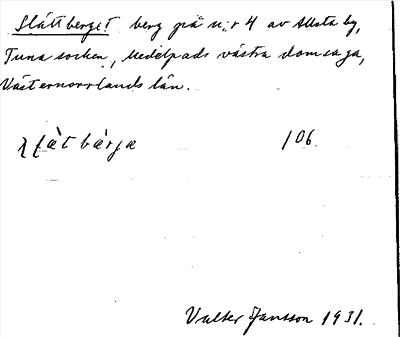 Slåttberget berg på n:r 4 av Allsta by,
Tuna socken, Medelpads västra domsaga,
Västernorrlands län.
106.
Valter Jansson 1931.